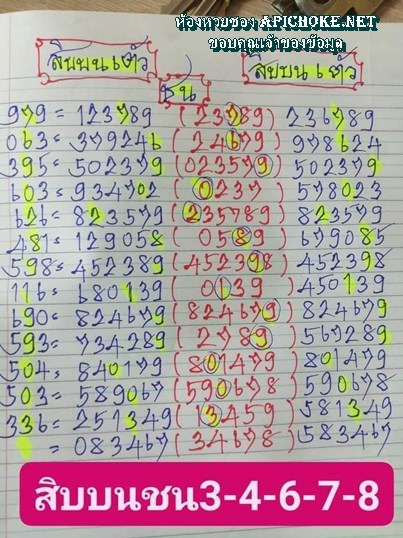 ห้องหวยของ APICHOKE.NET
ขอบคุณเจ้าของข้อมูล
สิบบน 1 ตัว สิบบน 1 ตัว
ชน
979 = 123789 (23789) 236789
063 = 379246 (24679) 978624
395 = 502379 (023579) 502379
603 = 934702 (0237) 578023
626 = 823579 (235789) 823579
481 = 129058 (0589) 679085
598 = 452389 (452398) 452398
116 = 680139 (0139) 450139
690 = 824679 (824679) 824679
593 = 734289 (2789) 567289
504 = 840179 (801479) 801479
503 = 589067 (590678) 590678
336 = 251349 (13459) 581349
= 083467 (34678) 583467
สิบบนชน3-4-6-7-8